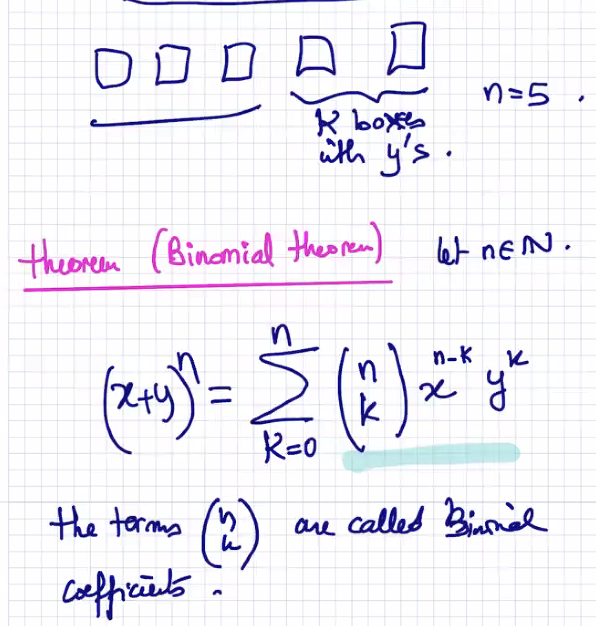 n=5 .
K boxes
with y's .
theorem (Binomial theorem) let n∈ℕ .
(x+y)^n = ∑_{K=0}^{n} (n k) x^{n-k} y^k
the terms (n k) are called Binomial
coefficients .